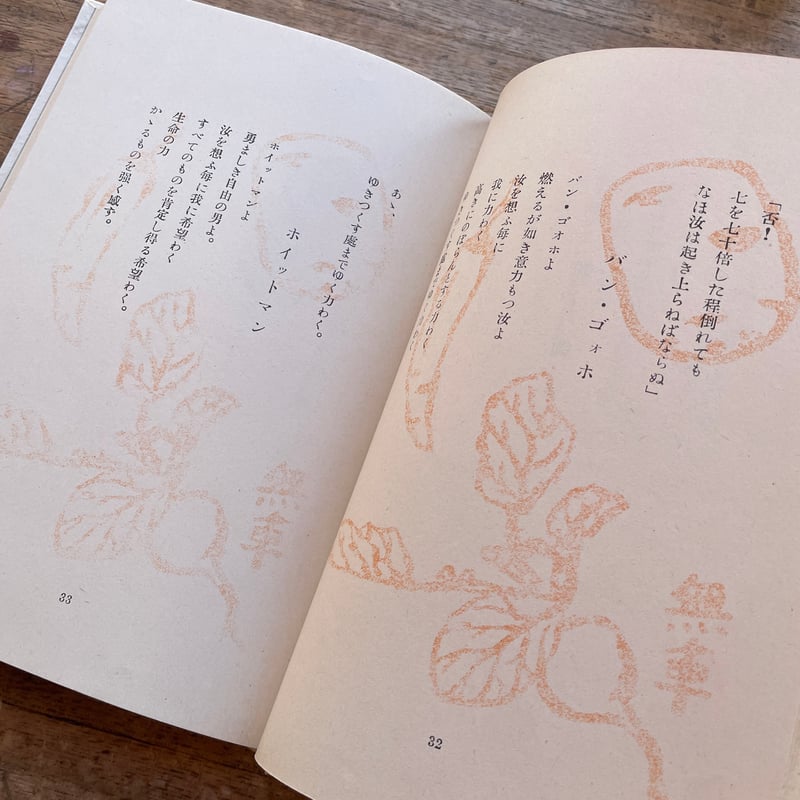 「否！
七を七十倍した程倒れても
なほ汝は起き上らねばならぬ」
バン・ゴォホ
バン・ゴォホよ
燃えるが如き意力もつ汝よ
汝を想ふ毎に
我に力わく
高きにのぼらんとする力わく
無車
32
あゝ、
ゆきつくす處までゆく力わく。
ホイットマン
ホイットマンよ
勇ましき自由の男よ。
汝を想ふ毎に我に希望わく
すべてのものを肯定し得る希望わく。
生命の力
かゝるものを強く感ず。
無車
33